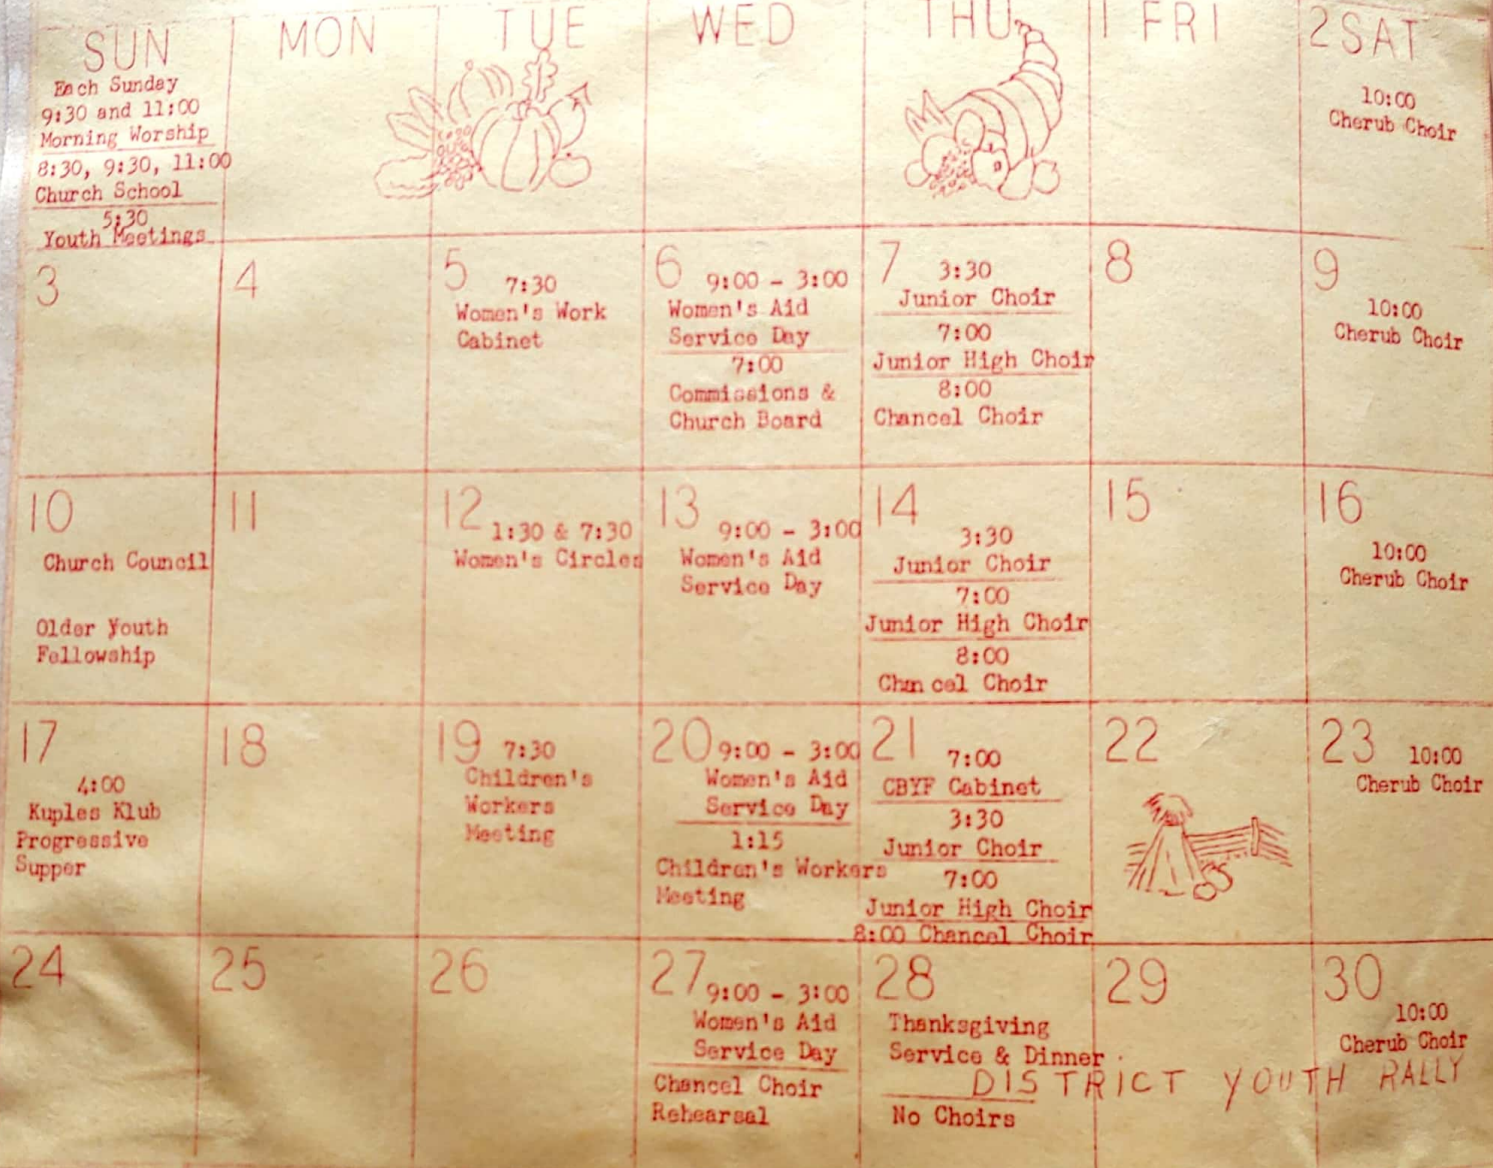 SUN MON TUE WED THU 1 FRI 2 SAT
Each Sunday
9:30 and 11:00
Morning Worship
8:30, 9:30, 11:00
Church School
5:30
Youth Meetings
10:00
Cherub Choir
3
4
5 7:30
Women's Work
Cabinet
6 9:00 - 3:00
Women's Aid
Service Day
7:00
Commissions &
Church Board
7 3:30
Junior Choir
7:00
Junior High Choir
8:00
Chancel Choir
8
9
10:00
Cherub Choir
10
Church Council
Older Youth
Fellowship
11
12 1:30 & 7:30
Women's Circles
13 9:00 - 3:00
Women's Aid
Service Day
14
3:30
Junior Choir
7:00
Junior High Choir
8:00
Chancel Choir
15
16
10:00
Cherub Choir
17
4:00
Kuples Klub
Progressive
Supper
18
19 7:30
Children's
Workers
Meeting
20 9:00 - 3:00
Women's Aid
Service Day
1:15
Children's Workers
Meeting
21 7:00
CBYF Cabinet
3:30
Junior Choir
7:00
Junior High Choir
8:00 Chancel Choir
22
23 10:00
Cherub Choir
24
25
26
27 9:00 - 3:00
Women's Aid
Service Day
Chancel Choir
Rehearsal
28
Thanksgiving
Service & Dinner
DISTRICT YOUTH RALLY
No Choirs
29
30
10:00
Cherub Choir